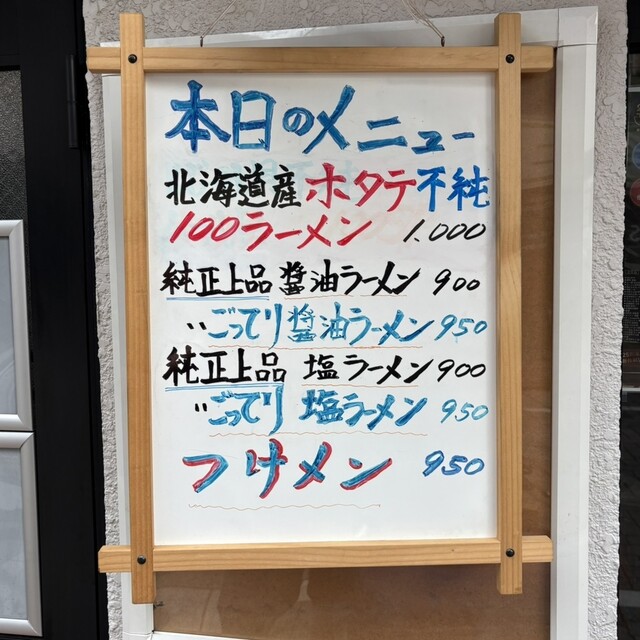 本日のメニュー
北海道産ホタテ不純
100ラーメン 1.000
純正上品 醤油ラーメン 900
〃ごってり醤油ラーメン 950
純正上品 塩ラーメン 900
〃ごってり 塩ラーメン 950
つけメン 950